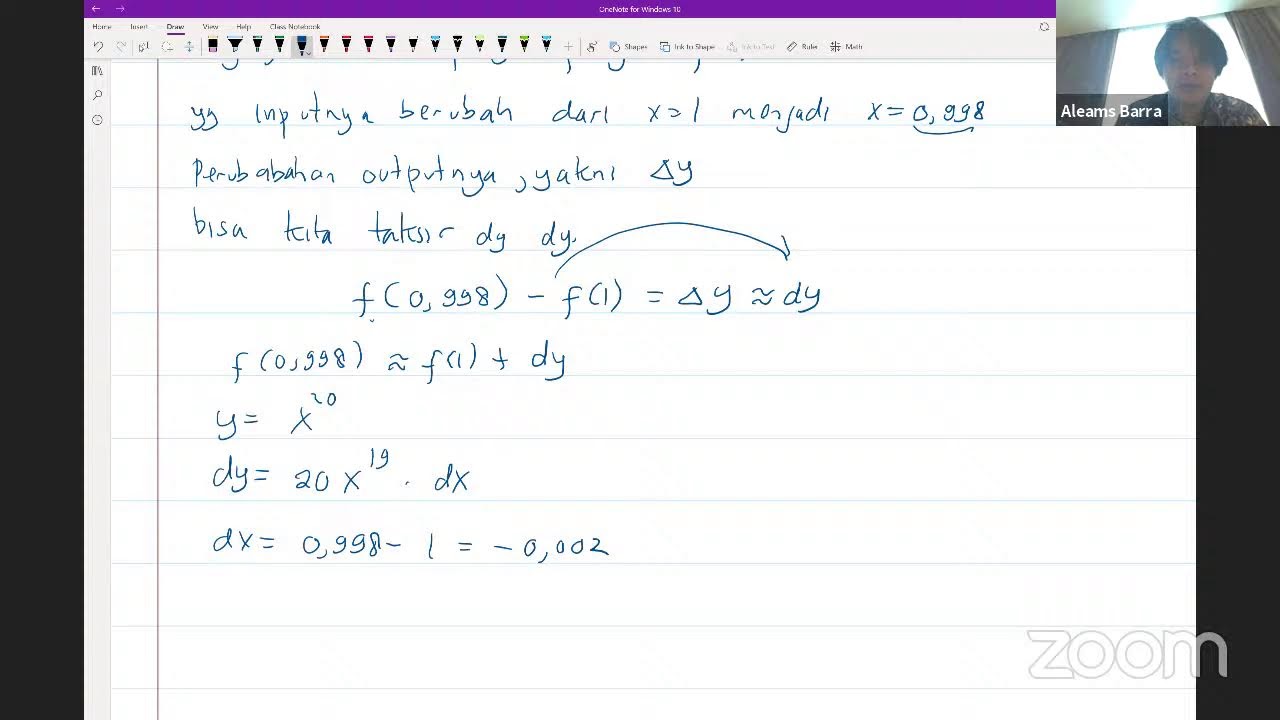 OneNote for Windows 10
Home Insert Draw View Help Class Notebook
Shapes Ink to Shape Ink to Text Ruler Math
Aleams Barra
yg inputnya berubah dari x=1 menjadi x=0,998
Perubabahan outputnya, yakni Δy
bisa kita taksir dg dy.
f(0,998) - f(1) = Δy ≈ dy
f(0,998) ≈ f(1) + dy
y= x²⁰
dy= 20x¹⁹ . dx
dx= 0,998- 1 = - 0,002
zoom